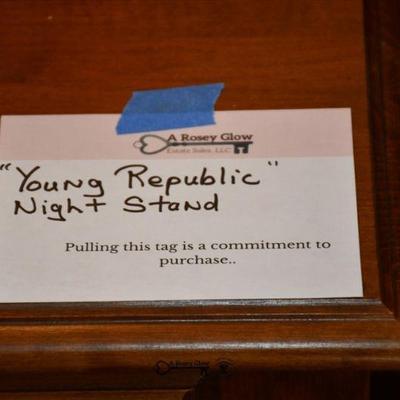 A Rosey Glow
Estate Sales, LLC
"Young Republic"
Night Stand
Pulling this tag is a commitment to
purchase..
A Rosey Glow